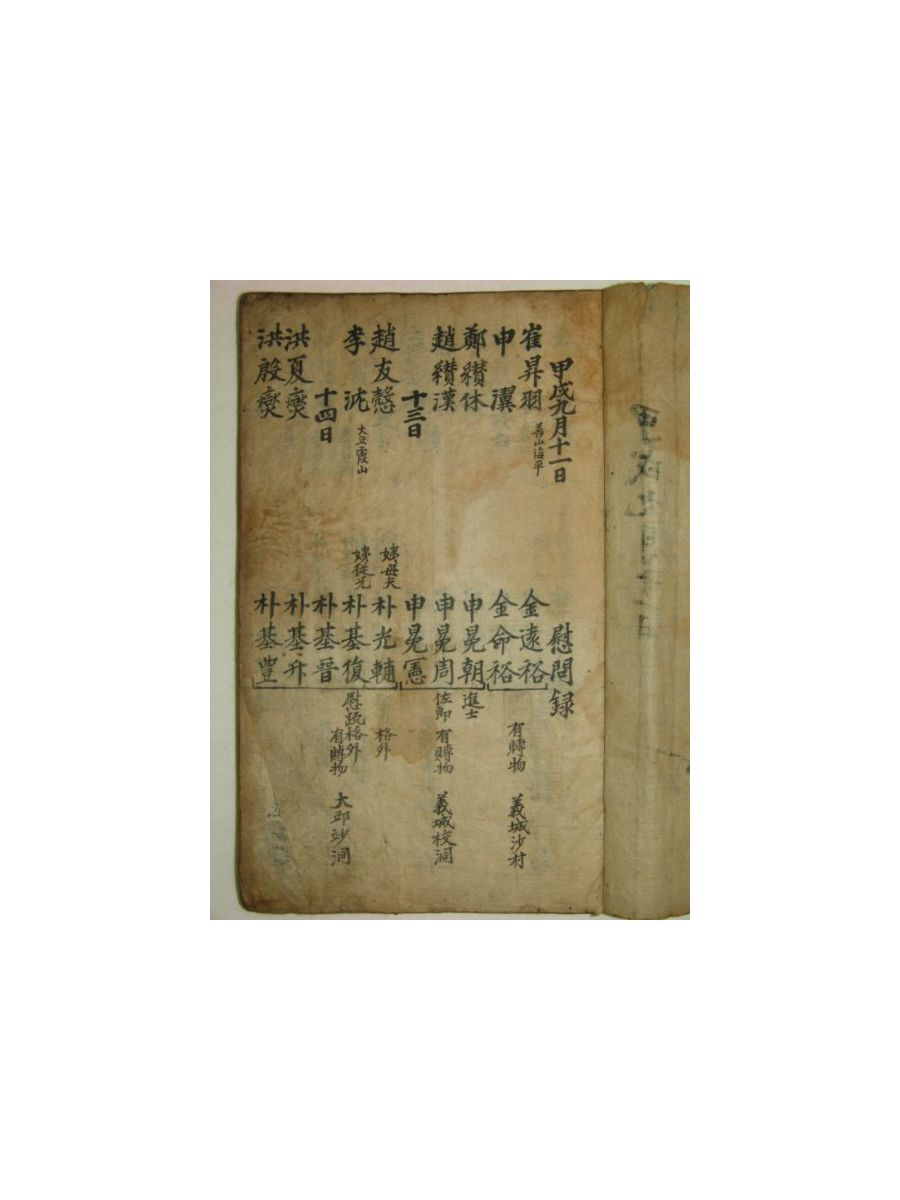 甲戌九月十一日
慰問録
崔昇羽
善山海平
申瀷
鄭纘休
趙纘漢
十三日
趙友慤
李沘
大豆霞山
十四日
洪夏燮
洪殷燮
金遠裕
金命裕
有賻物
義城沙村
申冕朝
進士
申冕周
佐郎
有賻物
義城校洞
申冕憲
姨母夫
朴光輔
格外
姨從兄
朴基復
慰䟽格外
有賻物
大邱沙洞
朴基晋
朴基升
朴基豊